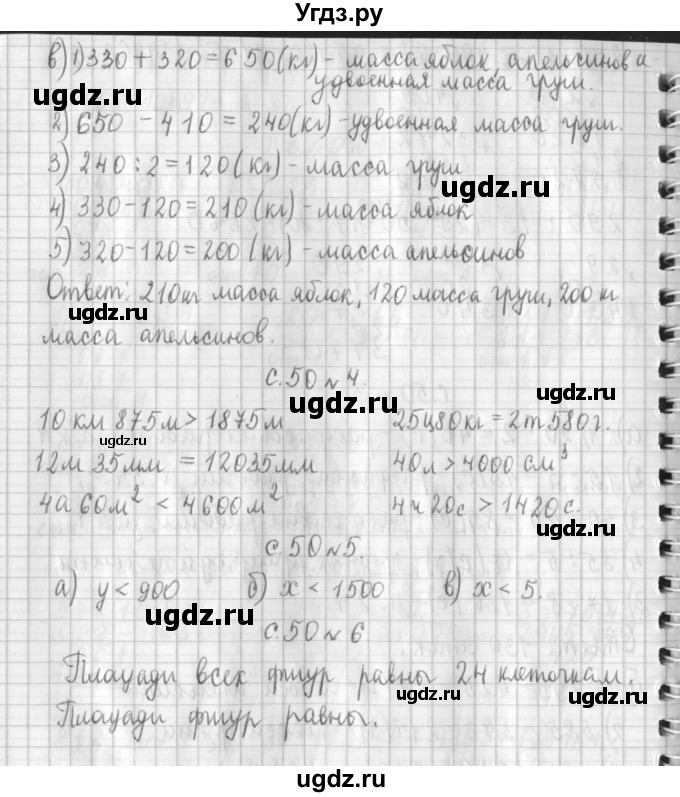 Угдз.ру
в) 1) 330 + 320 = 650 (кг) - масса яблок, апельсинов и
удвоенная масса груш.
ugdz.ru
2) 650 - 410 = 240 (кг) - удвоенная масса груш.
ugdz.ru
3) 240 : 2 = 120 (кг) - масса груш
ugdz.ru
4) 330 - 120 = 210 (кг) - масса яблок
ugdz.ru
5) 320 - 120 = 200 (кг) - масса апельсинов
Ответ: 210 кг масса яблок, 120 масса груш, 200 кг
ugdz.ru
масса апельсинов.
с. 50 № 4.
ugdz.ru ugdz.ru
10 км 875 м > 1875 м 25ц80кг = 2т 580г.
ugdz.ru
12м 35мм = 12035мм 40л > 4000 см³
ugdz.ru
4а 60м² < 4600м² 4ч 20с > 1420с.
ugdz.ru
с. 50 № 5.
а) y < 900 б) x < 1500 в) x < 5.
ugdz.ru
с. 50 № 6.
ugdz.ru
Площади всех фигур равны 24 клеточкам.
ugdz.ru ugdz.ru
Площади фигур равны.
ugdz.ru
ugdz.ru